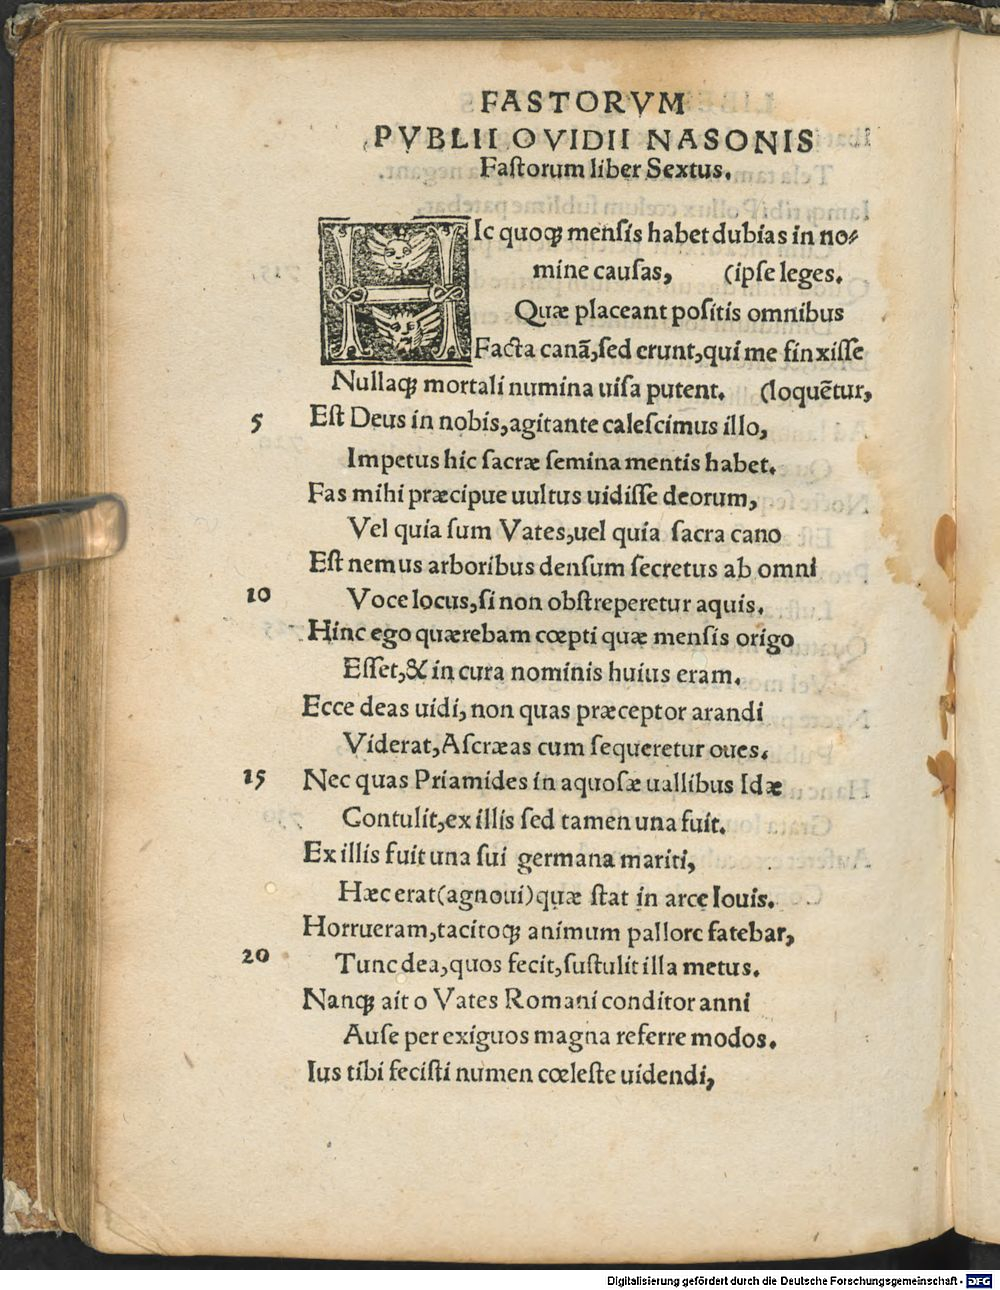 FASTORVM
PVBLII OVIDII NASONIS
Faſtorum liber Sextus.
HIc quoq; menſis habet dubias in no-
mine cauſas, (ipſe leges.
Quæ placeant poſitis omnibus
Facta canã, ſed erunt, qui me finxiſſe
Nullaq; mortali numina uiſa putent. (loquẽtur,
5 Eſt Deus in nobis, agitante caleſcimus illo,
Impetus hic ſacræ ſemina mentis habet.
Fas mihi præcipue uultus uidiſſe deorum,
Vel quia ſum Vates, uel quia ſacra cano
Eſt nemus arboribus denſum ſecretus ab omni
10 Voce locus, ſi non obſtreperetur aquis.
Hinc ego quærebam cœpti quæ menſis origo
Eſſet, & in cura nominis huius eram.
Ecce deas uidi, non quas præceptor arandi
Viderat, Aſcræas cum ſequeretur oues.
15 Nec quas Priamides in aquoſæ uallibus Idæ
Contulit, ex illis ſed tamen una fuit.
Ex illis fuit una ſui germana mariti,
Hæc erat (agnoui) quæ ſtat in arce Iouis.
Horrueram, tacitoq; animum pallore fatebar,
20 Tunc dea, quos fecit, ſuſtulit illa metus.
Nanq; ait o Vates Romani conditor anni
Auſe per exiguos magna referre modos.
Ius tibi feciſti numen cœleſte uidendi,
Digitalisierung gefördert durch die Deutsche Forschungsgemeinschaft - DFG